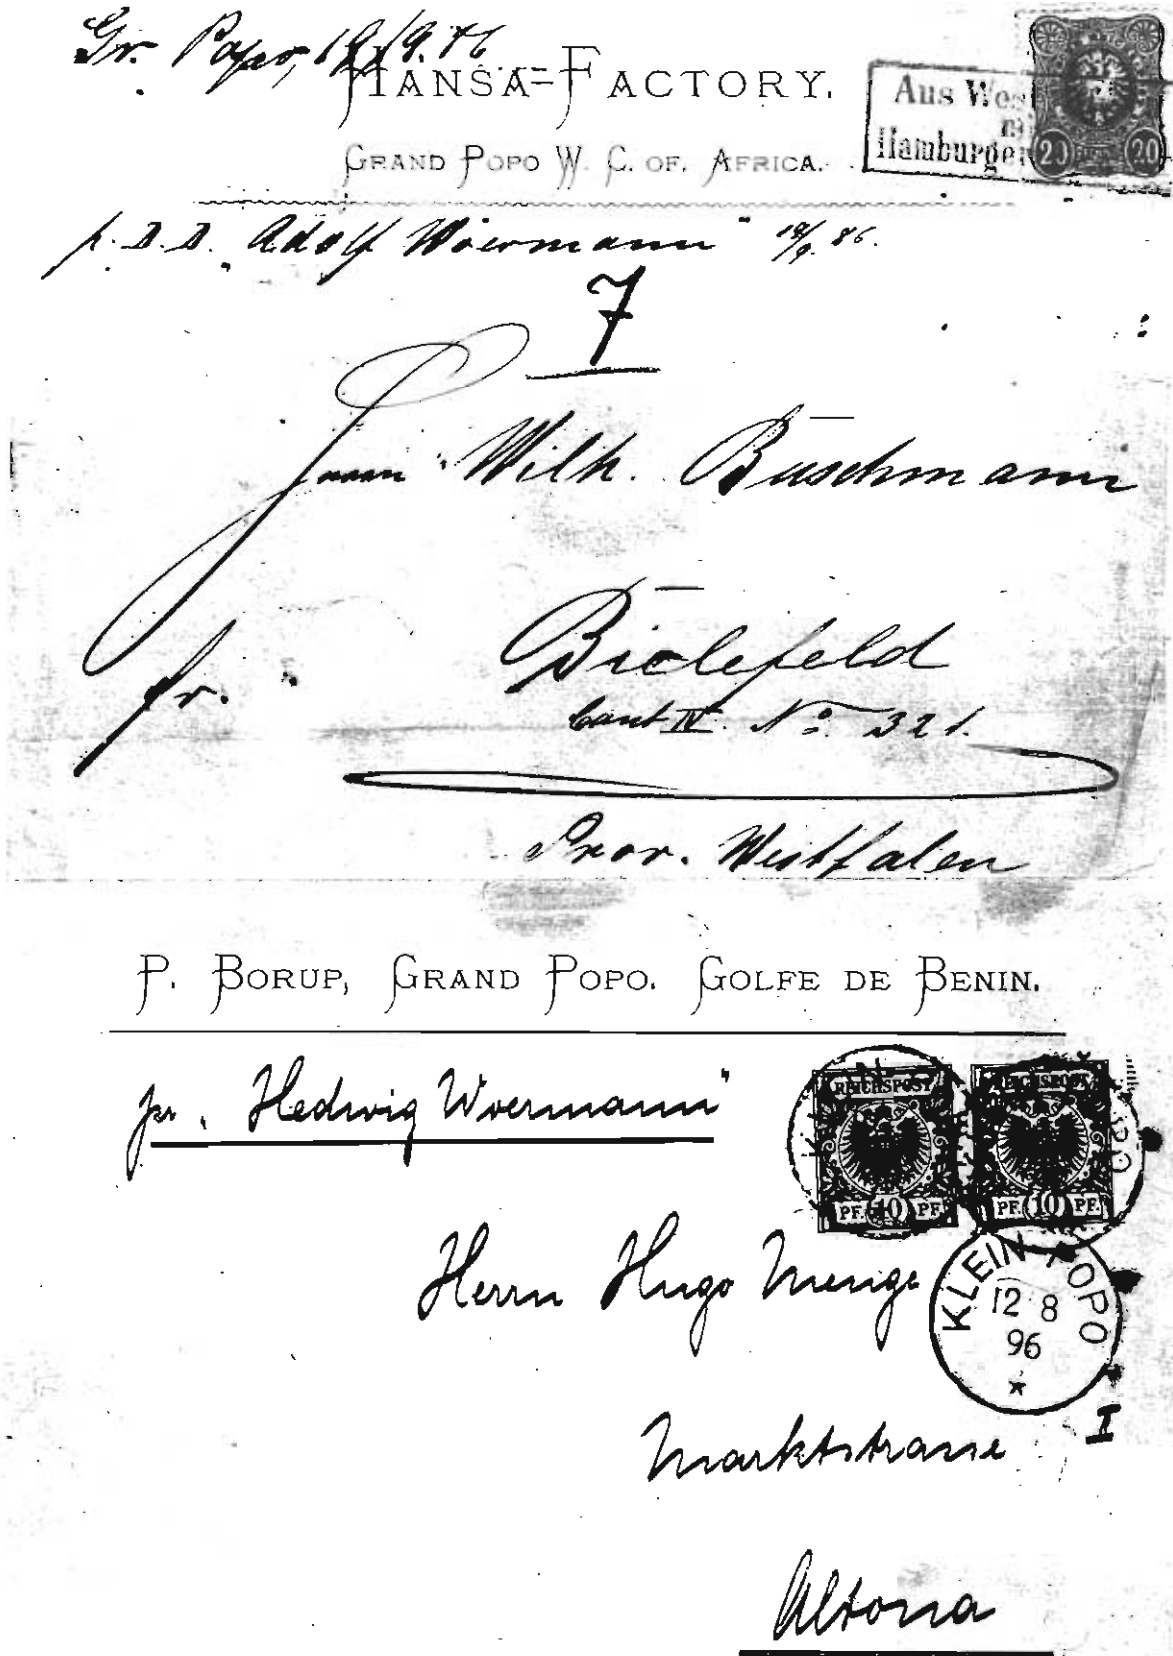 Gr. Popo, 19/9. 86
HANSA-FACTORY.
GRAND POPO W. C. OF. AFRICA.
Aus Wes
Hamburger
20 20
p. D. D. "Adolf Woermann" 19/9. 86.
7
Herrn Wilh. Buschmann
fr.
Bielefeld
Cant IV. No. 321.
Prov. Westfalen
P. BORUP, GRAND POPO. GOLFE DE BENIN.
per "Hedwig Woermann"
REICHSPOST REICHSPOST
PF. 10 PF. PF. 10 PF.
Herrn Hugo Menge
KLEIN POPO
12 8
96
*
I
Marktstrasse
Altona